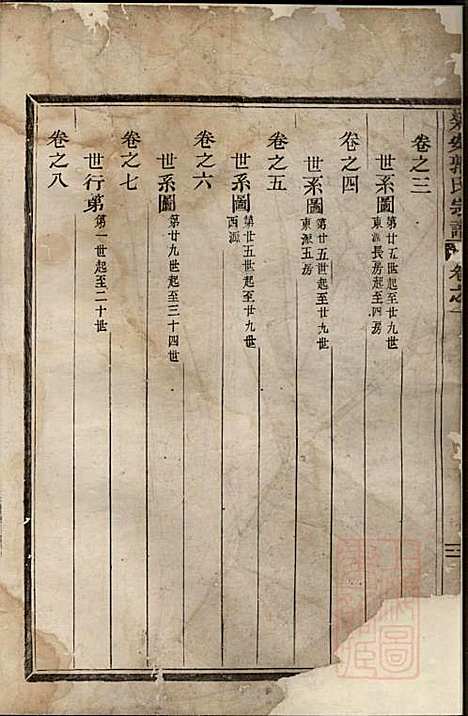 氏宗譜
卷之
三
卷之三
世系圖 第廿五世起至廿九世
東派長房起至四房
卷之四
世系圖 第廿五世起至廿九世
東派五房
卷之五
世系圖 第廿五世起至廿九世
西派
卷之六
世系圖 第廿九世起至三十四世
卷之七
世行第 第一世起至二十世
卷之八